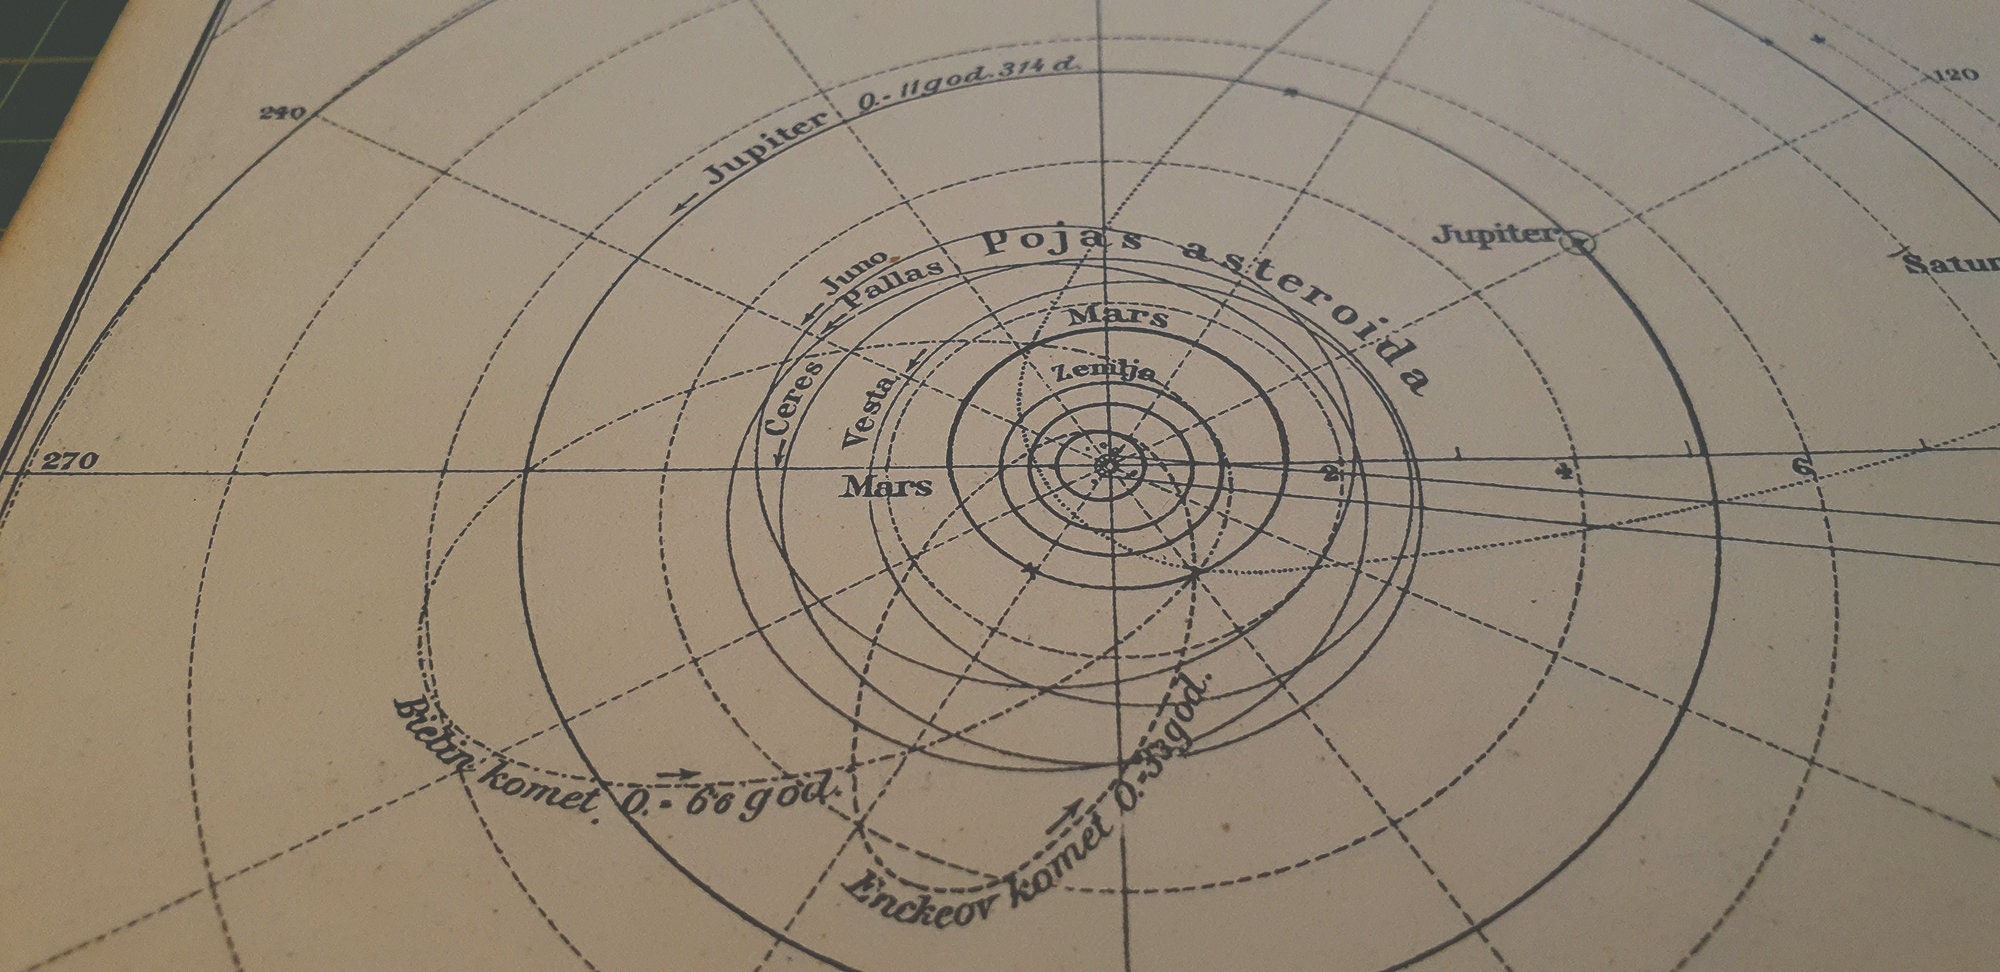 120
240
Jupiter 0.- 11 god. 314 d.
Jupiter
Satur
Pojas asteroida
Juno
Pallas
Ceres
Vesta
Mars
Zemlja
270
Mars
2
4
6
Bielin komet. 0.- 6·6 god.
Enckeov komet 0.- 3·3 god.